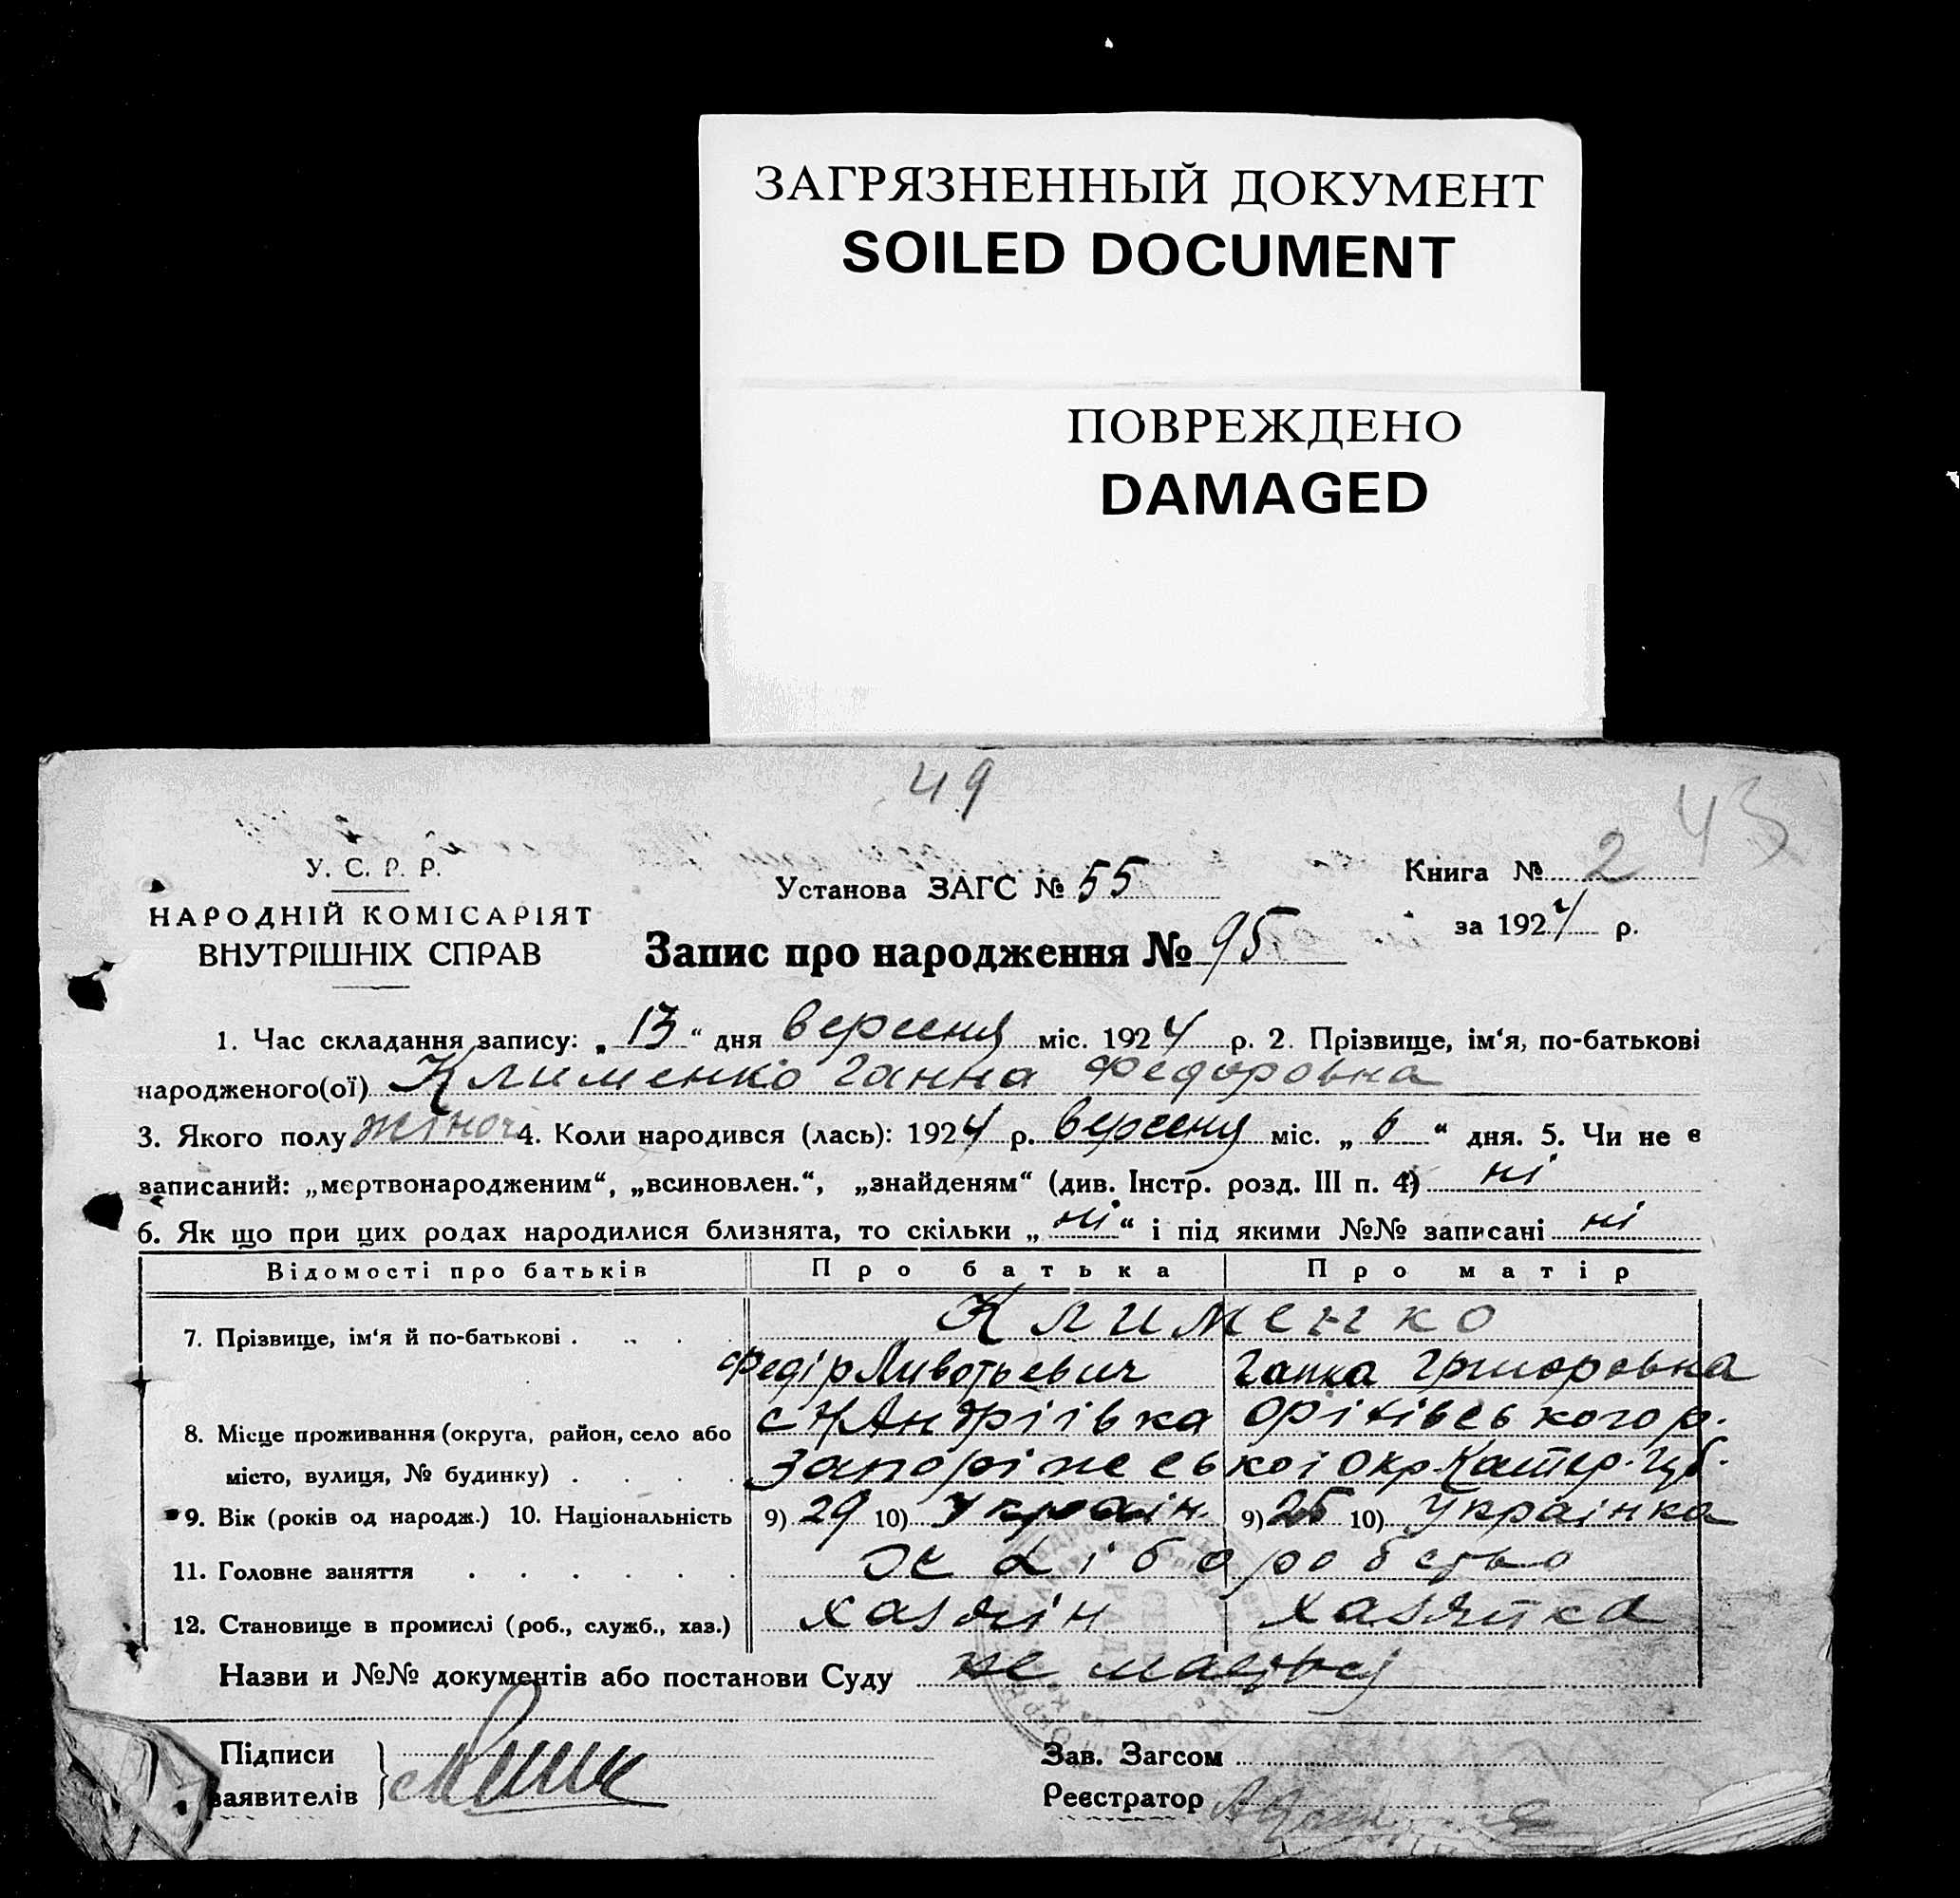 ЗАГРЯЗНЕННЫЙ ДОКУМЕНТ
SOILED DOCUMENT
ПОВРЕЖДЕНО
DAMAGED
49
43
У. С. Р. Р.
НАРОДНІЙ КОМІСАРІЯТ
ВНУТРІШНІХ СПРАВ
Установа ЗАГС № 55
Книга № 2
за 1924 р.
Запис про народження № 95
1. Час складання запису: „13“ дня вересня міс. 1924 р. 2. Прізвище, ім‘я, по-батькові
народженого(ої) Клименко Ганна Федоровна
3. Якого полу жіноч 4. Коли народився (лась): 1924 р. вересня міс. „6“ дня. 5. Чи не є
записаний: „мєртвонародженим“, „всиновлен.“, „знайденям“ (див. Інстр. розд. III п. 4) ні
6. Як що при цих родах народилися близнята, то скільки „ні“ і під якими №№ записані ні
Відомості про батьків Про батька Про матір
7. Прізвище, ім‘я й по-батькові . Клименко
Федір Ганна Григоровна
8. Місце проживання (округа, район, село або с Н Андріівка Оріхівського р.
місто, вулиця, № будинку) . Запоріжеської Окр. Катер. Губ.
9. Вік (років од народж.) 10. Національність 9) 29 10) Україн. 9) 25 10) Українка
11. Головне заняття . . . . . . хліборобство
12. Становище в промислі (роб., служб., хаз.) хазяін хазяйка
Назви и №№ документів або постанови Суду не маеться
Підписи
заявителів
Зав. Загсом
Реєстратор